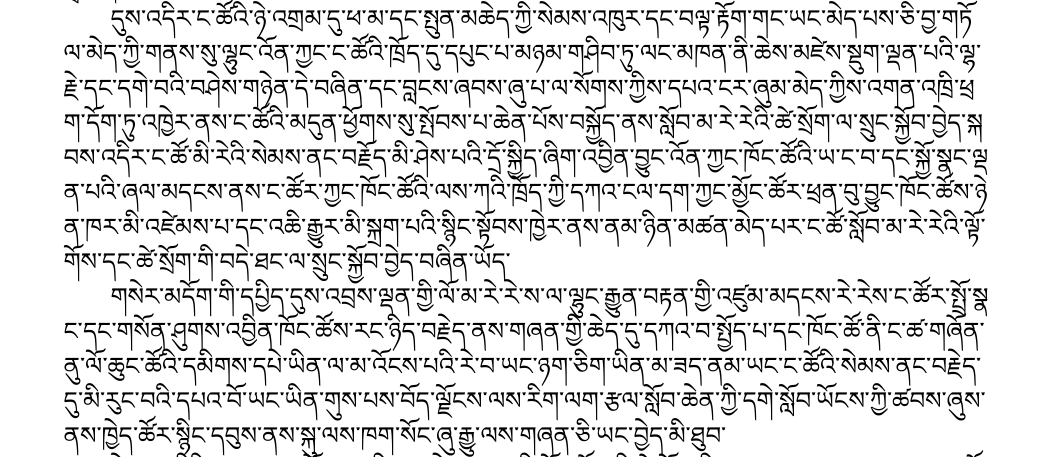 དུས་འདིར་ང་ཚོའི་ཉེ་འགྲམ་དུ་ཕ་མ་དང་སྤུན་མཆེད་ཀྱི་སེམས་འཁུར་དང་བལྟ་རྟོག་གང་ཡང་མེད་པས་ཅི་བྱ་གཏོ
ལ་མེད་ཀྱི་གནས་སུ་ལྷུང་འོན་ཀྱང་ང་ཚོའི་ཁྲོད་དུ་དཔུང་པ་མཉམ་གཤིབ་ཏུ་ལང་མཁན་ནི་ཆེས་མཛེས་སྡུག་ལྡན་པའི་ལྷ་
རྗེ་དང་དགེ་བའི་བཤེས་གཉེན་དེ་བཞིན་དང་བླངས་ཞབས་ཞུ་པ་ལ་སོགས་ཀྱིས་དཔའ་ངར་ཞུམ་མེད་ཀྱིས་འགན་འཁྲི་ཕྲ
ག་དོག་ཏུ་འཁྱེར་ནས་ང་ཚོའི་མདུན་ཕྱོགས་སུ་སྤོབས་པ་ཆེན་པོས་བསྐྱོད་ནས་སློབ་མ་རེ་རེའི་ཚེ་སྲོག་ལ་སྲུང་སྐྱོབ་བྱེད་སྐ
བས་འདིར་ང་ཚོ་མི་རེའི་སེམས་ནང་བརྗོད་མི་ཤེས་པའི་དྲོ་སྐྱིད་ཞིག་འབྱིན་བྱུང་འོན་ཀྱང་ཁོང་ཚོའི་ཡ་ང་བ་དང་སྐྱོ་སྣང་ལྡ
ན་པའི་ཞལ་མདངས་ནས་ང་ཚོར་ཀྱང་ཁོང་ཚོའི་ལས་ཀའི་ཁྲོད་ཀྱི་དཀའ་ངལ་དག་ཀྱང་མྱོང་ཚོར་ཕྲན་བུ་བྱུང་ཁོང་ཚོས་ཉེ
ན་ཁར་མི་འཛེམས་པ་དང་འཆི་རྒྱུར་མི་སྐྲག་པའི་སྙིང་སྟོབས་ཁྱེར་ནས་ནམ་ཉིན་མཚན་མེད་པར་ང་ཚོ་སློབ་མ་རེ་རེའི་ལྟོ་
གོས་དང་ཚེ་སྲོག་གི་བདེ་ཐང་ལ་སྲུང་སྐྱོབ་བྱེད་བཞིན་ཡོད་
གསེར་མདོག་གི་དཔྱིད་དུས་འབྲས་ལྡན་གྱི་ལོ་མ་རེ་རེ་ས་ལ་ལྷུང་རྒྱུན་བརྟན་གྱི་འཛུམ་མདངས་རེ་རེས་ང་ཚོར་སྤྲོ་སྣ
ང་དང་གསོན་ཤུགས་འབྱིན་ཁོང་ཚོས་རང་ཉིད་བརྗེད་ནས་གཞན་གྱི་ཆེད་དུ་དཀའ་བ་སྤྱོད་པ་དང་ཁོང་ཚོ་ནི་ང་ཚ་གཞོན་
ནུ་ལོ་ཆུང་ཚོའི་དམིགས་དཔེ་ཡིན་ལ་མ་འོངས་པའི་རེ་བ་ཡང་ཉག་ཅིག་ཡིན་མ་ཟད་ནམ་ཡང་ང་ཚོའི་སེམས་ནང་བརྗེད་
དུ་མི་རུང་བའི་དཔའ་བོ་ཡང་ཡིན་གུས་པས་བོད་ལྗོངས་ལས་རིག་ལག་རྩལ་སློབ་ཆེན་ཀྱི་དགེ་སློབ་ཡོངས་ཀྱི་ཚབས་ཞུས་
ནས་ཁྱེད་ཚོར་སྙིང་དབུས་ནས་སྐུ་ལས་ཁག་སོང་ཞུ་རྒྱུ་ལས་གཞན་ཅི་ཡང་བྱེད་མི་ཐུབ་